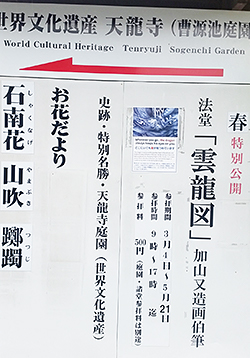 世界文化遺産 天龍寺（曹源池庭園
World Cultural Heritage Tenryuji Sogenchi Garden
春 特別公開
法堂「雲龍図」加山又造画伯筆
参拝期間 3月4日～5月21日
参拝時間 9時～17時迄
参拝料 500円（庭園・諸堂参拝料は別途）
史跡・特別名勝・天龍寺庭園（世界文化遺産）
お花だより
石南花 しゃくなげ
山吹 やまぶき
躑躅 つつじ